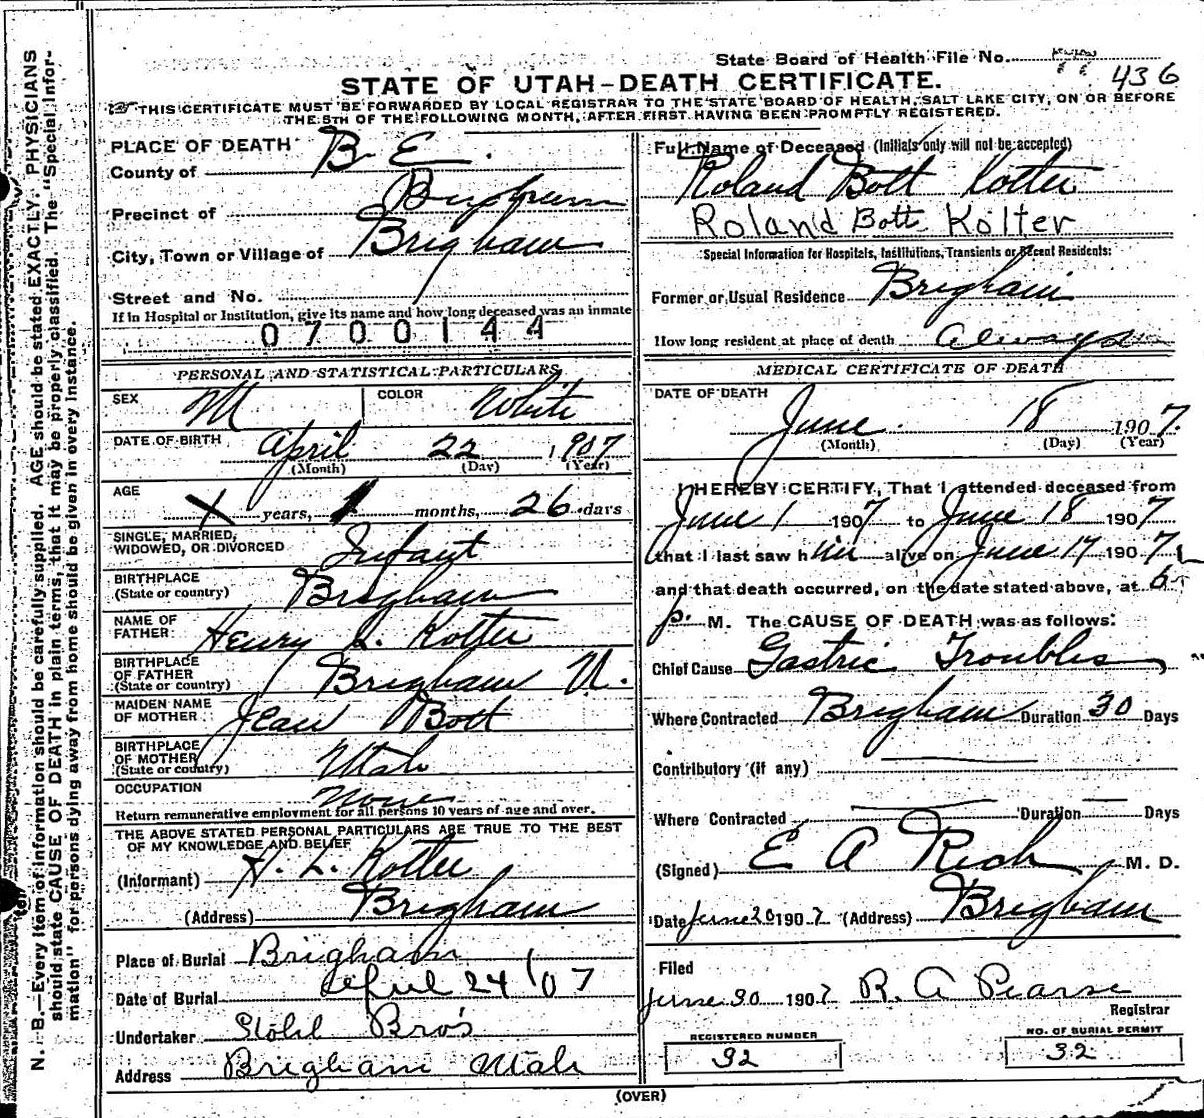 State Board of Health File No. 436
STATE OF UTAH-DEATH CERTIFICATE.
THIS CERTIFICATE MUST BE FORWARDED BY LOCAL REGISTRAR TO THE STATE BOARD OF HEALTH, SALT LAKE CITY, ON OR BEFORE
THE 5TH OF THE FOLLOWING MONTH, AFTER FIRST HAVING BEEN PROMPTLY REGISTERED.
N. B.—Every item of information should be carefully supplied. AGE should be stated EXACTLY. PHYSICIANS
should state CAUSE OF DEATH in plain terms, that it may be properly classified. The "Special Infor-
mation" for persons dying away from home should be given in every instance.
PLACE OF DEATH
County of B. E.
Precinct of
City, Town or Village of Brigham
Street and No.
If in Hospital or Institution, give its name and how long deceased was an inmate
0700144
PERSONAL AND STATISTICAL PARTICULARS
SEX M COLOR White
DATE OF BIRTH April 22, 1907
(Month) (Day) (Year)
AGE X years, 1 months, 26 days
SINGLE, MARRIED,
WIDOWED, OR DIVORCED Infant
BIRTHPLACE
(State or country) Brigham
NAME OF
FATHER Henry L. Kotter
BIRTHPLACE
OF FATHER
(State or country) Brigham U.
MAIDEN NAME
OF MOTHER Jean Bott
BIRTHPLACE
OF MOTHER
(State or country) Utah
OCCUPATION None
Return remunerative employment for all persons 10 years of age and over.
THE ABOVE STATED PERSONAL PARTICULARS ARE TRUE TO THE BEST
OF MY KNOWLEDGE AND BELIEF
(Informant) H. L. Kotter
(Address) Brigham
Place of Burial Brigham
Date of Burial April 24/07
Undertaker Stohl Bro's
Address Brigham Utah
Full Name of Deceased (Initials only will not be accepted)
Roland Bott Kotter
Roland Bott Kolter
Special Information for Hospitals, Institutions, Transients or Recent Residents:
Former or Usual Residence Brigham
How long resident at place of death Always
MEDICAL CERTIFICATE OF DEATH
DATE OF DEATH
June 18 1907.
(Month) (Day) (Year)
I HEREBY CERTIFY, That I attended deceased from
June 1 1907 to June 18 1907
that I last saw him alive on June 17 1907,
and that death occurred, on the date stated above, at 6
p. M. The CAUSE OF DEATH was as follows:
Chief Cause Gastric Troubles
Where Contracted Brigham Duration 30 Days
Contributory (if any)
Where Contracted Duration Days
(Signed) E A Rich M. D.
Date June 20 1907 (Address) Brigham
Filed
June 30 1907 R. A Pearse
Registrar
REGISTERED NUMBER NO. OF BURIAL PERMIT
32 32
(OVER)